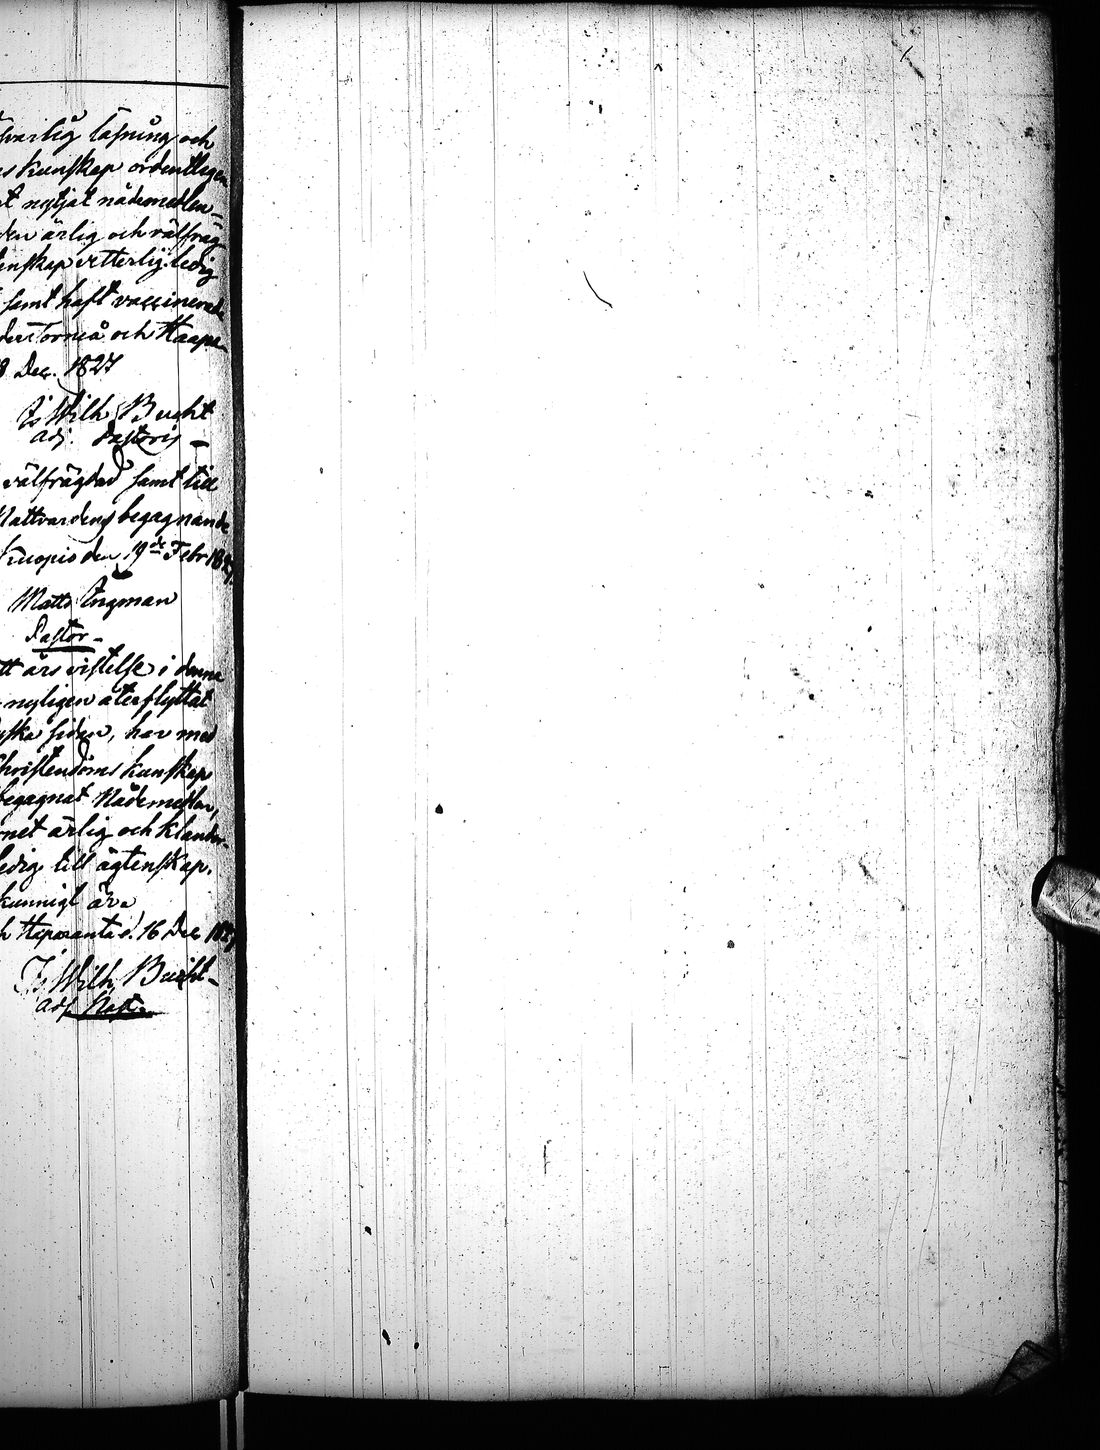 svarlig läsning och
s kunskap ordentligen
t nytjat nådemedlen
den ärlig och välfräg
enskap vetterlig. ledig
samt haft vaccinerade
Torneå och Haapa
8 Dec. 1827
Js Wilh Bucht
adj. Pastoris
välfrägdad samt till
Nattvardens begagnande
Kuopio den 19de Febr 1827
Matts Ingman
Pastor
tt års vistelse i denna
nyligen återflyttat
ska sidan, har med
Christendoms kunskap
begagnat Nådemedlen,
ärlig och klander
ledig till ägtenskap.
kunnigt äro
h Haparanda d. 16 Dec 1827
Js Wilh Bucht
adj. Past.